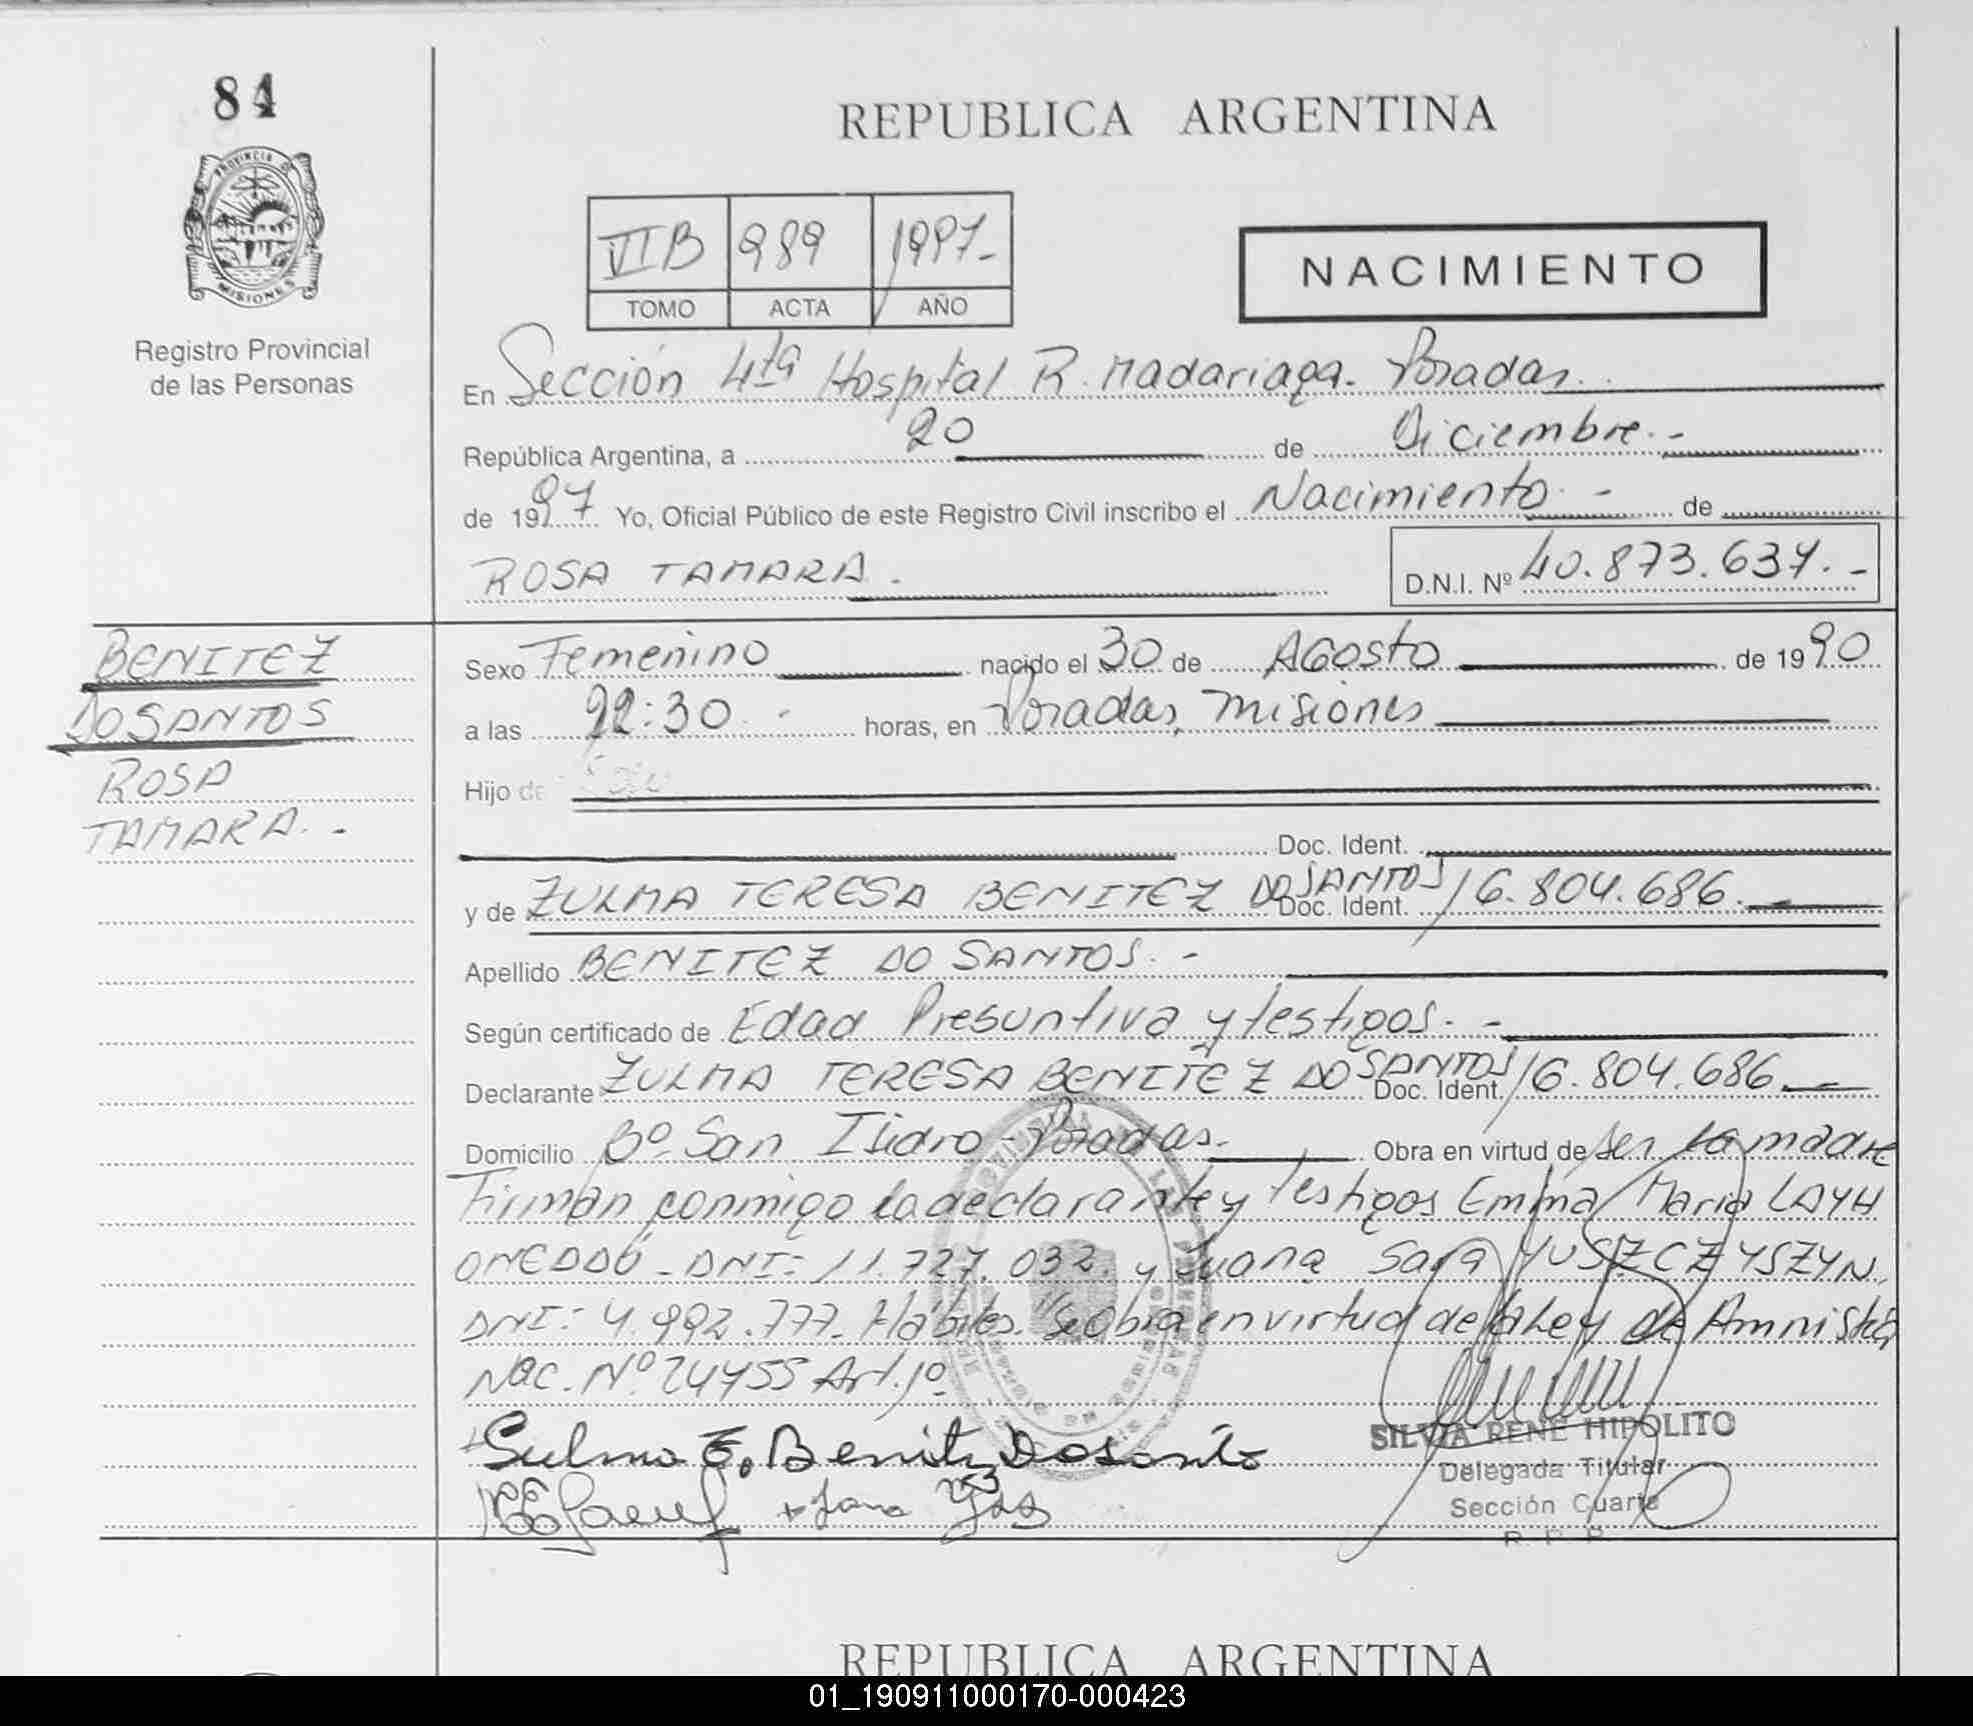 84
REPUBLICA ARGENTINA
PROVINCIA D
MISIONES
VI B 989 1997-
TOMO ACTA AÑO
NACIMIENTO
Registro Provincial
de las Personas
En Sección 4ta Hospital R. Madariaga. Posadas.
República Argentina, a 20 de Diciembre.-
de 1997 Yo, Oficial Público de este Registro Civil inscribo el Nacimiento.- de
ROSA TAMARA.
D.N.I. Nº 40.873.637.-
BENITEZ
DO SANTOS
ROSA
TAMARA.-
Sexo Femenino nacido el 30 de AGosto de 1990
a las 22:30.- horas, en Posadas, Misiones
Hijo de
Doc. Ident.
y de ZULMA TERESA BENITEZ DO SANTOS Doc. Ident. 16.804.686.-
Apellido BENITEZ DO SANTOS.-
Según certificado de Edad Presuntiva y testigos.-
Declarante ZULMA TERESA BENITEZ DO SANTOS Doc. Ident. 16.804.686.-
Domicilio Bº San Isidro - Posadas.- Obra en virtud de Ser la madre
Firman conmigo la declarante y testigos Emma Maria LAYH
OMEDDÚ - DNI: 11.727.032. y Juana Sara YUSZCZYSZYN.
DNI: 4.992.777. Hábiles. Se obra en virtud de la Ley de Amnistía
Nac. Nº 24755 Art. 1º
Sulma T. Benitz Dosanto
SILVIA RENE HIPOLITO
Delegada Titular
Sección Cuarta
R. P. P.
REPUBLICA ARGENTINA
01_190911000170-000423